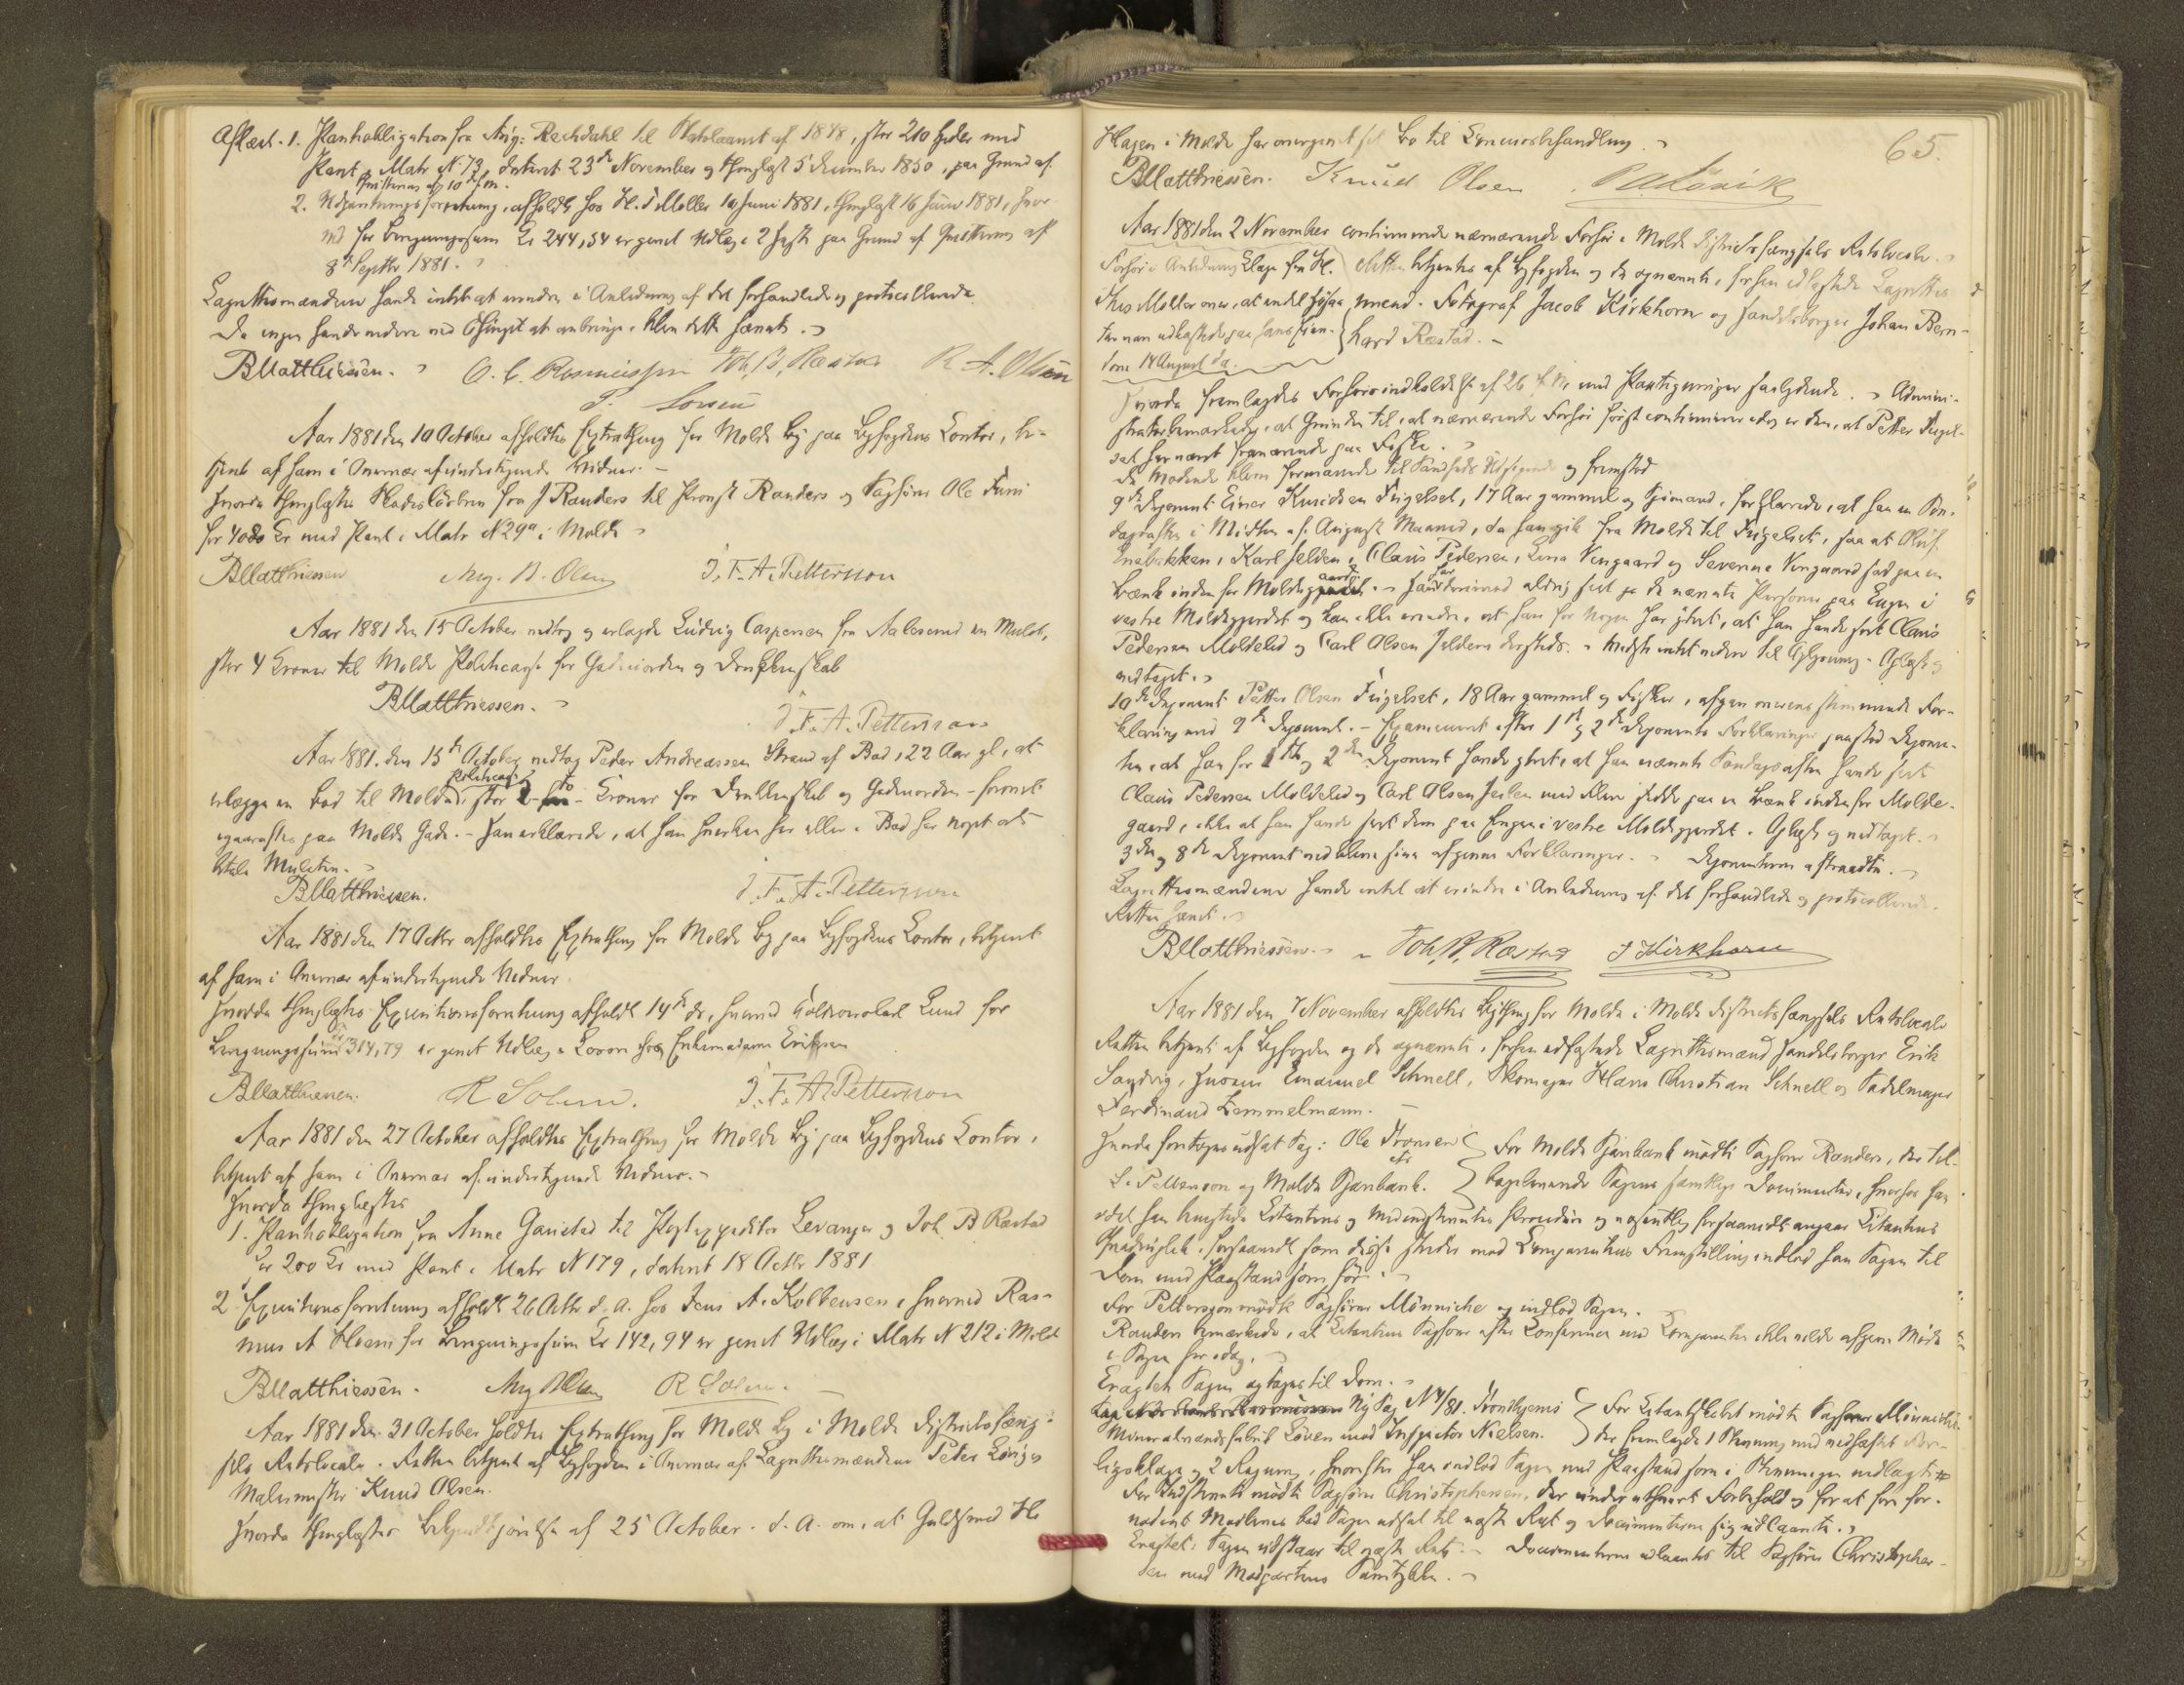 Aflæst. 1. Panteobligation fra Aug: Rechdahl til Statslaanet af 1848, stor 210 Spder med
Pant i Matr N 73, dateret 23de November og thinglæst 5 December 1850, paa Grund af
Qvittering af 10 dsm.
2. Udpantningsforretning, afholdt hos H. I Møller 14 Juni 1881, thinglæst 16 Juni 1881, hvor
ved for Brugsum Kr 244,54 er gjort Udlæg i 2 Heste paa Grund af Qvittering af
8de Septbr 1881.
Lagrettesmændene havde intet at erindre i Anledning af det forhandlede og protocollerede.
Da ingen havde videre ved Thinget at anbringe, blev dette hævet.
BMatthiessen. O. C. Rasmussen Joh. B. Ræstad R. A. Olsen
P. Sorven
Aar 1881 den 10 October afholdtes Extrathing for Molde By paa Byfogdens Contor, be-
tjent af ham i Overvær af undertegnede Vidner. -
Hvorda thinglæstes Skadesløsbrev fra J Randers til Provst Randers og Sagfører Ole
for 4000 Kr med Pant i Matr N 29a i Molde
BMatthiessen Aug. B. Olsen J. F. A. Petterson
Aar 1881 den 15 October vedtog og erlagde Ludvig Caspersen fra Aalesund en Mulct,
stor 4 Kroner til Molde Politicasse for Gadeuorden og Drukkenskab
BMatthiessen.
J. F. A. Petterson
Aar 1881. den 15de October vedtog Peder Andreassen Strand af Bod, 22 Aar gl, at
erlægge en Bod til Molde Politicasse, stor to Kroner for Drukkenskab og Gadeuorden - forøvet
igaaraftes paa Molde Gade. - Han erklærede, at han hverken her eller i Bod har noget at
betale Mulcten.
BMatthiessen. J. F. A. Petterson
Aar 1881 den 17 Octbr afholdtes Extrathing for Molde By paa Byfogdens Contor, betjent
af ham i Overvær af undertegnede Vidner.
Hvorda thinglæstes Executionsforretning afholdt 14de ds, hvorved Lund for
Bringningssum Kr 314,79 er gjort Udlæg i Løsøre hos Enkemadame Eriksen
BMatthiessen. R Solem. J. F. A. Petterson
Aar 1881 den 27 October afholdtes Extrathing for Molde By paa Byfogdens Contor,
betjent af ham i Overvær af undertegnede Vidner. -
Hvorda thinglæstes
1. Panteobligation fra Anne Garsetad til Postexpeditør Levanger og Joh. B Ræstad
for 200 Kr med Pant i Matr N 179, dateret 18 Octbr 1881
2. Executionsforretning afholdt 26 Octbr d. A. hos Jens A. Kolbensen, hvorved Ras-
mus A Hoem for Bringningssum Kr 142,94 er gjort Udlæg i Matr N 212 i Molde
BMatthiessen. Aug B Olsen R Solem.
Aar 1881 den 31 October holdtes Extrathing for Molde By i Molde Districtsfæng-
sels Retslocale. Retten betjent af Byfogden i Overvær af Lagrettesmændene Peter Løvig og
Malermester Knud Olsen.
Hvorda thinglæstes Bekjendtgjørelse af 25 October d. A. om, at Guldsmed H
65.
Hagen i Molde har overgivet sit Bo til Concursbehandling.
BMatthiessen. Knud Olsen P A Løvik
Aar 1881 den 2 November continuerede nærværende Forhør i Molde Districtsfængsels Retslocale.
Forhør i Anledning Klage fra H. Retten betjentes af Byfogden og de opnævnte, forhen edfæstede Lagrettes
This Møller over, at endel Hø paa mænd. Fotograf Jacob Kirkhorn og Handelsborger Johan Bern-
tun var udkastede paa hans Eien- hard Ræstad. -
dom 14 August d. a.
Hvorda fremlagdes Forhørsindkaldelse af 26 f. M. med Paategninger saalydende. Admini-
strator bemærkede, at Grunden til, at nærværende Forhør først continueres idag er den, at Petter Fugel-
sæt har været fraværende paa Fiske.
De Mødende bleve formanede til Sandheds Udsigende og fremstod
9de Deponent Einer Knudsen Fugelset, 17 Aar gammel og Sømand, forklarede, at han en Søn-
dagsaften i Midten af August Maaned, da han gik fra Molde til Fugelset, saa at Oluf
Enebakken, Karl Jelden, Claus Pedersen, Lena Vengaard og Severine Vengaard sad paa en
Bænk inden for Moldegaard. - Han har derimod aldrig seet de nævnte Personer paa Engen i
vestre Moldegjerdet og kan ikke erindre, at han for Nogen har ytret, at han havde seet Claus
Pedersen Moldelid og Carl Olsen Jelden dersteds. - Vidste intet videre til Oplysning. Oplæst og
vedtaget.
10de Deponent Petter Olsen Fugelset, 18 Aar gammel og Fisker, afgav overensstemmende For-
klaring med 9de Deponent. - Examineret efter 1ste og 2den Deponents Forklaringer paastod Depone-
ten, at han for 1ste og 2den Deponent havde ytret, at han nævnte Søndagsaften havde seet
Claus Pedersen Moldelid og Carl Olsen Jelden med Flere sidde paa en Bænk inden for Molde-
gaard, ikke at han havde seet dem paa Engen i vestre Moldegjerdet. Oplæst og vedtaget.
3die og 8de Deponent vedbleve sine afgivne Forklaringer. Deponenterne aftraadte.
Lagrettesmændene havde intet at erindre i Anledning af det forhandlede og protocollerede.
Retten hævet.
BMatthiessen. Joh. B. Ræstad J Kirkhorn
Aar 1881 den 7 November afholdtes Bything for Molde i Molde Districtsfængsels Retslocale
Retten betjent af Byfogden og de opnævnte, forhen edfæstede Lagrettesmænd Handelsborger Erik
Sandvig, Emanuel Schnell, Skomager Hans Christian Schnell og Sadelmager
Ferdinand Zemmelmann. -
Hvorda foretoges udsat Sag: Ole Tronsen For Molde Sparebank mødte Sagfører Randers, der til-
ctr
L. Petterson og Molde Sparebank. bageleverede Sagens samtlige Documenter, hvorhos han
idet han bestred Citantens og Medindstævntes Procedure og navnlig forsaavidt angaar Citantens
Qvadruplik, forsaavidt som disse strider mod Comparentens Fremstilling indlod han Sagen til
Dom med Paastand som før.
For Petterson mødte Sagfører Münniche og indlod Sagen.
Randers bemærkede, at Citantens Sagfører efter Conference med Comparenten ikke vilde afgive Møde
i Sagen her idag.
Eragtet Sagen optages til Dom.
Ny Sag N 4/81. Trondhjems For Citantskabet mødte Sagfører Münniche
Mineralvandsfabrik Løven mod Inspector Nielsen. der fremlagde 1 Stevning med vedhæftet For-
ligsklage og 2 Regning, hvorefter han indlod Sagen med Paastand som i Stevningen nedlagt.
For Indstevnte mødte Sagfører Christophersen, der under ethvert Forbehold og for at
nødent Modbevis bad Sagen udsat til næste Ret og Documenterne sig udlaante.
Eragtet: Sagen udstaar til næste Ret. - Documenterne udlaantes til Sagfører Christopher-
sen med Modpartens Samtykke. -